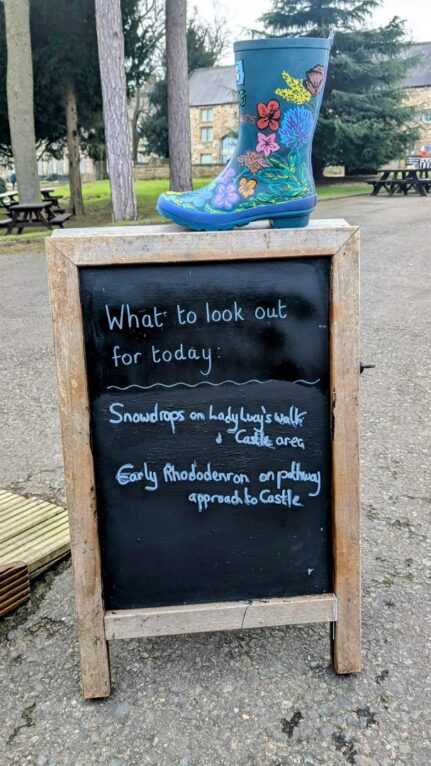 What to look out
for today:
Snowdrops on Lady Lucy's walk
& Castle area
Early Rhododenron on pathway
approach to Castle